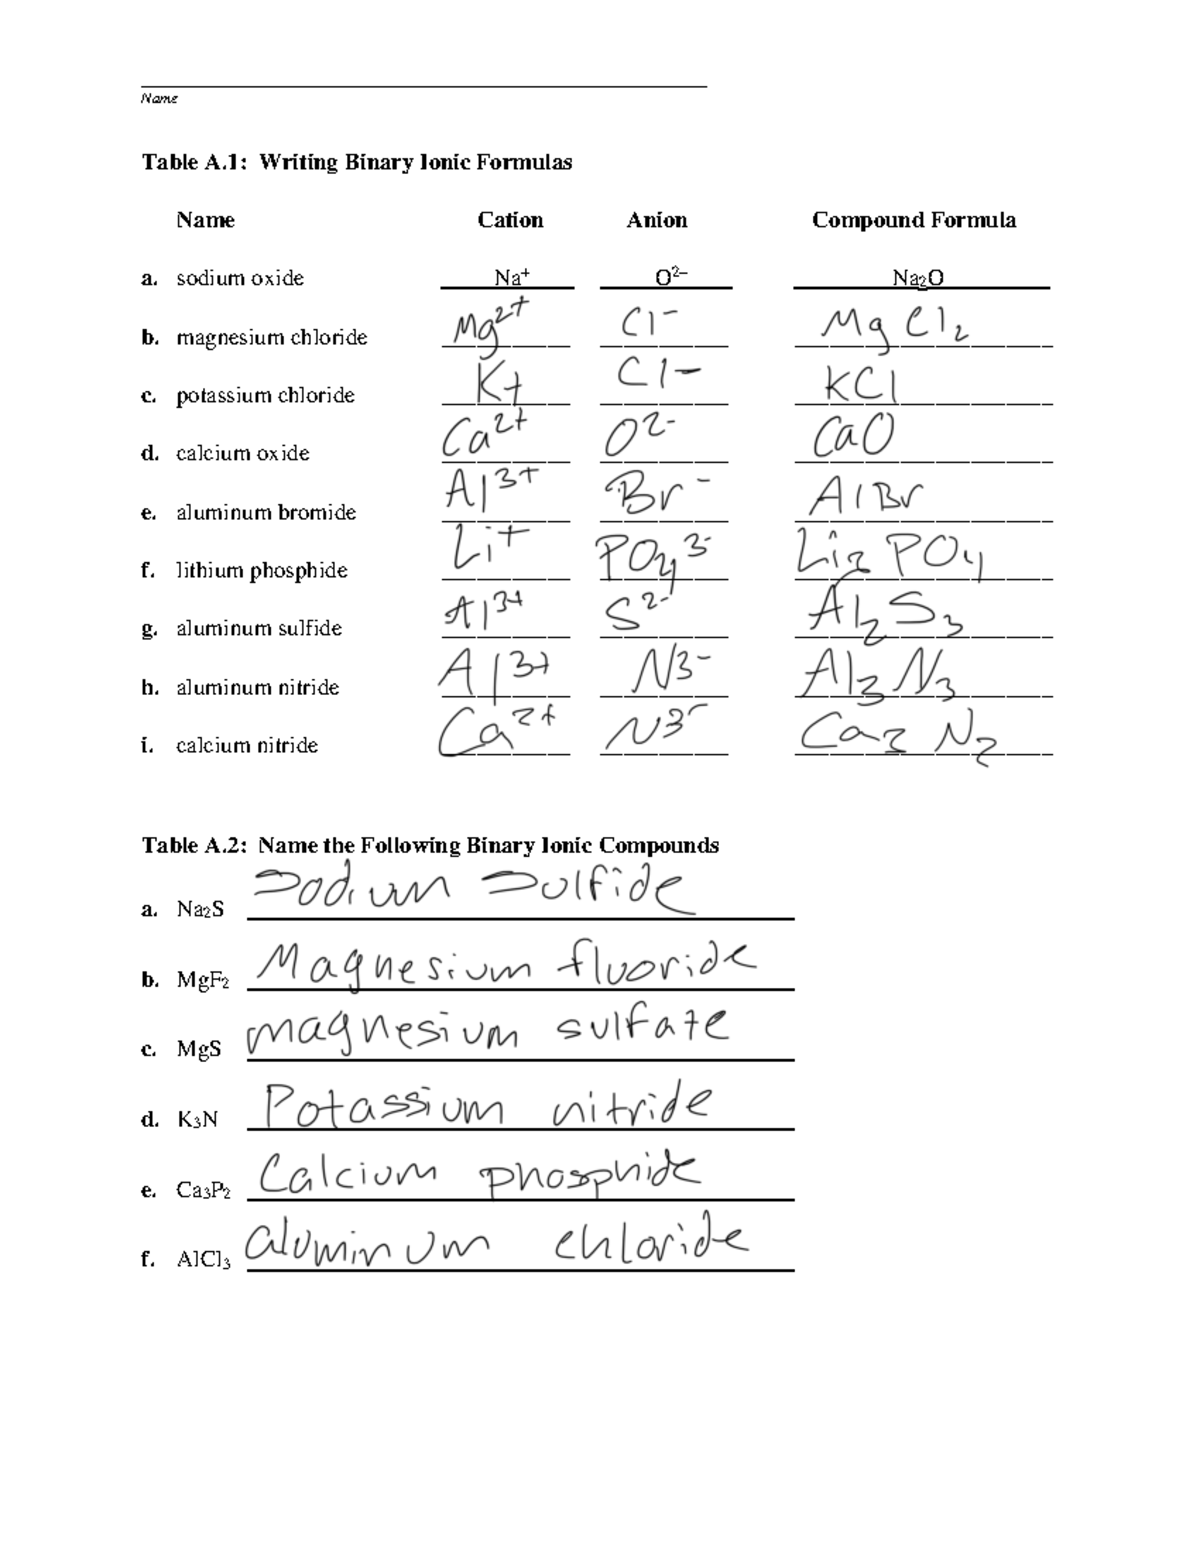 Name
Table A.1: Writing Binary Ionic Formulas
Name Cation Anion Compound Formula
a. sodium oxide Na⁺ O²⁻ Na₂O
b. magnesium chloride Mg²⁺ Cl⁻ MgCl₂
c. potassium chloride K+ Cl⁻ KCl
d. calcium oxide Ca²⁺ O²⁻ CaO
e. aluminum bromide Al³⁺ Br⁻ AlBr
f. lithium phosphide Li⁺ PO₄³⁻ Li₃PO₄
g. aluminum sulfide Al³⁺ S²⁻ Al₂S₃
h. aluminum nitride Al³⁺ N³⁻ Al₃N₃
i. calcium nitride Ca²⁺ N³⁻ Ca₃N₂
Table A.2: Name the Following Binary Ionic Compounds
a. Na₂S Sodium Sulfide
b. MgF₂ Magnesium fluoride
c. MgS magnesium sulfate
d. K₃N Potassium nitride
e. Ca₃P₂ Calcium phosphide
f. AlCl₃ aluminum chloride